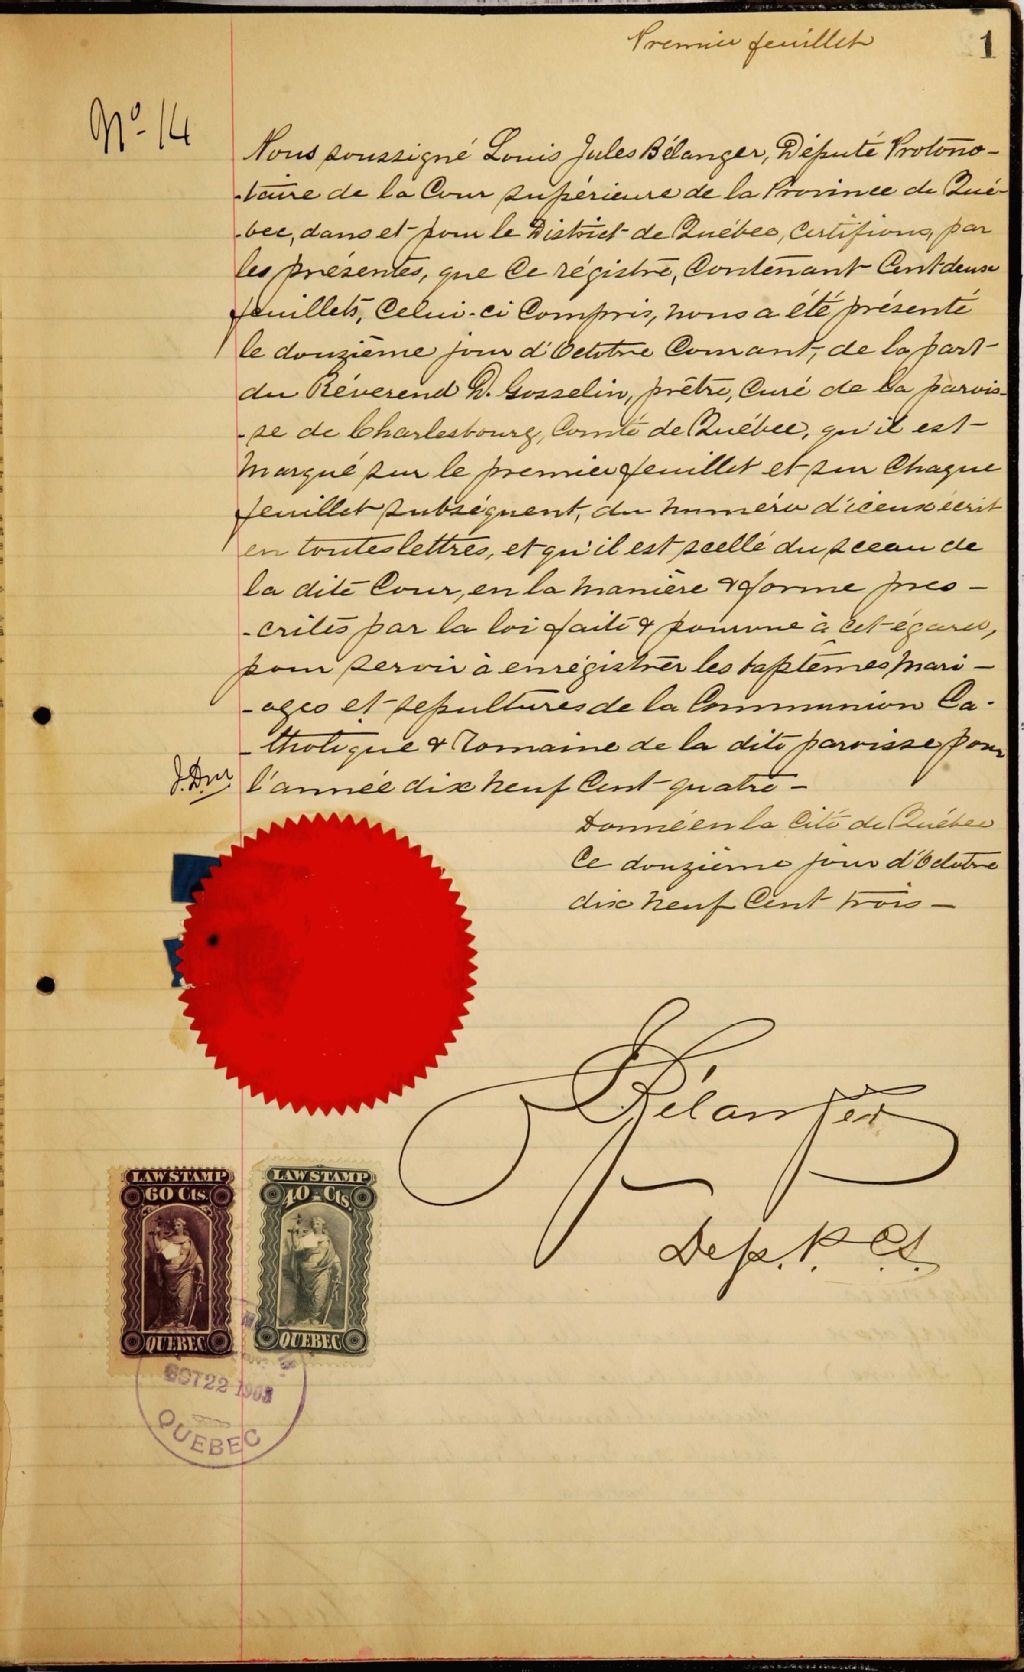 Premier feuillet
1
No. 14
Nous soussigné Louis Jules Bélanger, Député Protono-
-taire de la Cour supérieure de la Province de Qué-
-bec, dans et pour le District de Québec, certifions, par
les présentes, que ce régistre, contenant cent deux
feuillets, celui-ci compris, nous a été présenté
le douzième jour d'Octobre courant, de la part
du Révérend D. Gosselin, prêtre, curé de la parois-
-se de Charlesbourg, Comté de Québec, qu'il est
marqué sur le premier feuillet et sur chaque
feuillet subséquent, du numéro d'iceux écrit
en toutes lettres, et qu'il est scellé du sceau de
la dite Cour, en la manière & forme pres-
-crites par la loi faite & pourvue à cet égard,
pour servir à enrégistrer les baptêmes, mari-
-ages et sepultures de la Communion Ca-
-tholique & Romaine de la dite paroisse pour
l'année dix neuf cent quatre -
Donné en la Cité de Québec
ce douzième jour d'Octobre
dix neuf cent trois -
Bélanger
Dep. P. C.S.
LAW STAMP
60 Cts.
QUEBEC
LAW STAMP
40 Cts.
QUEBEC
OCT 22 1903
QUEBEC